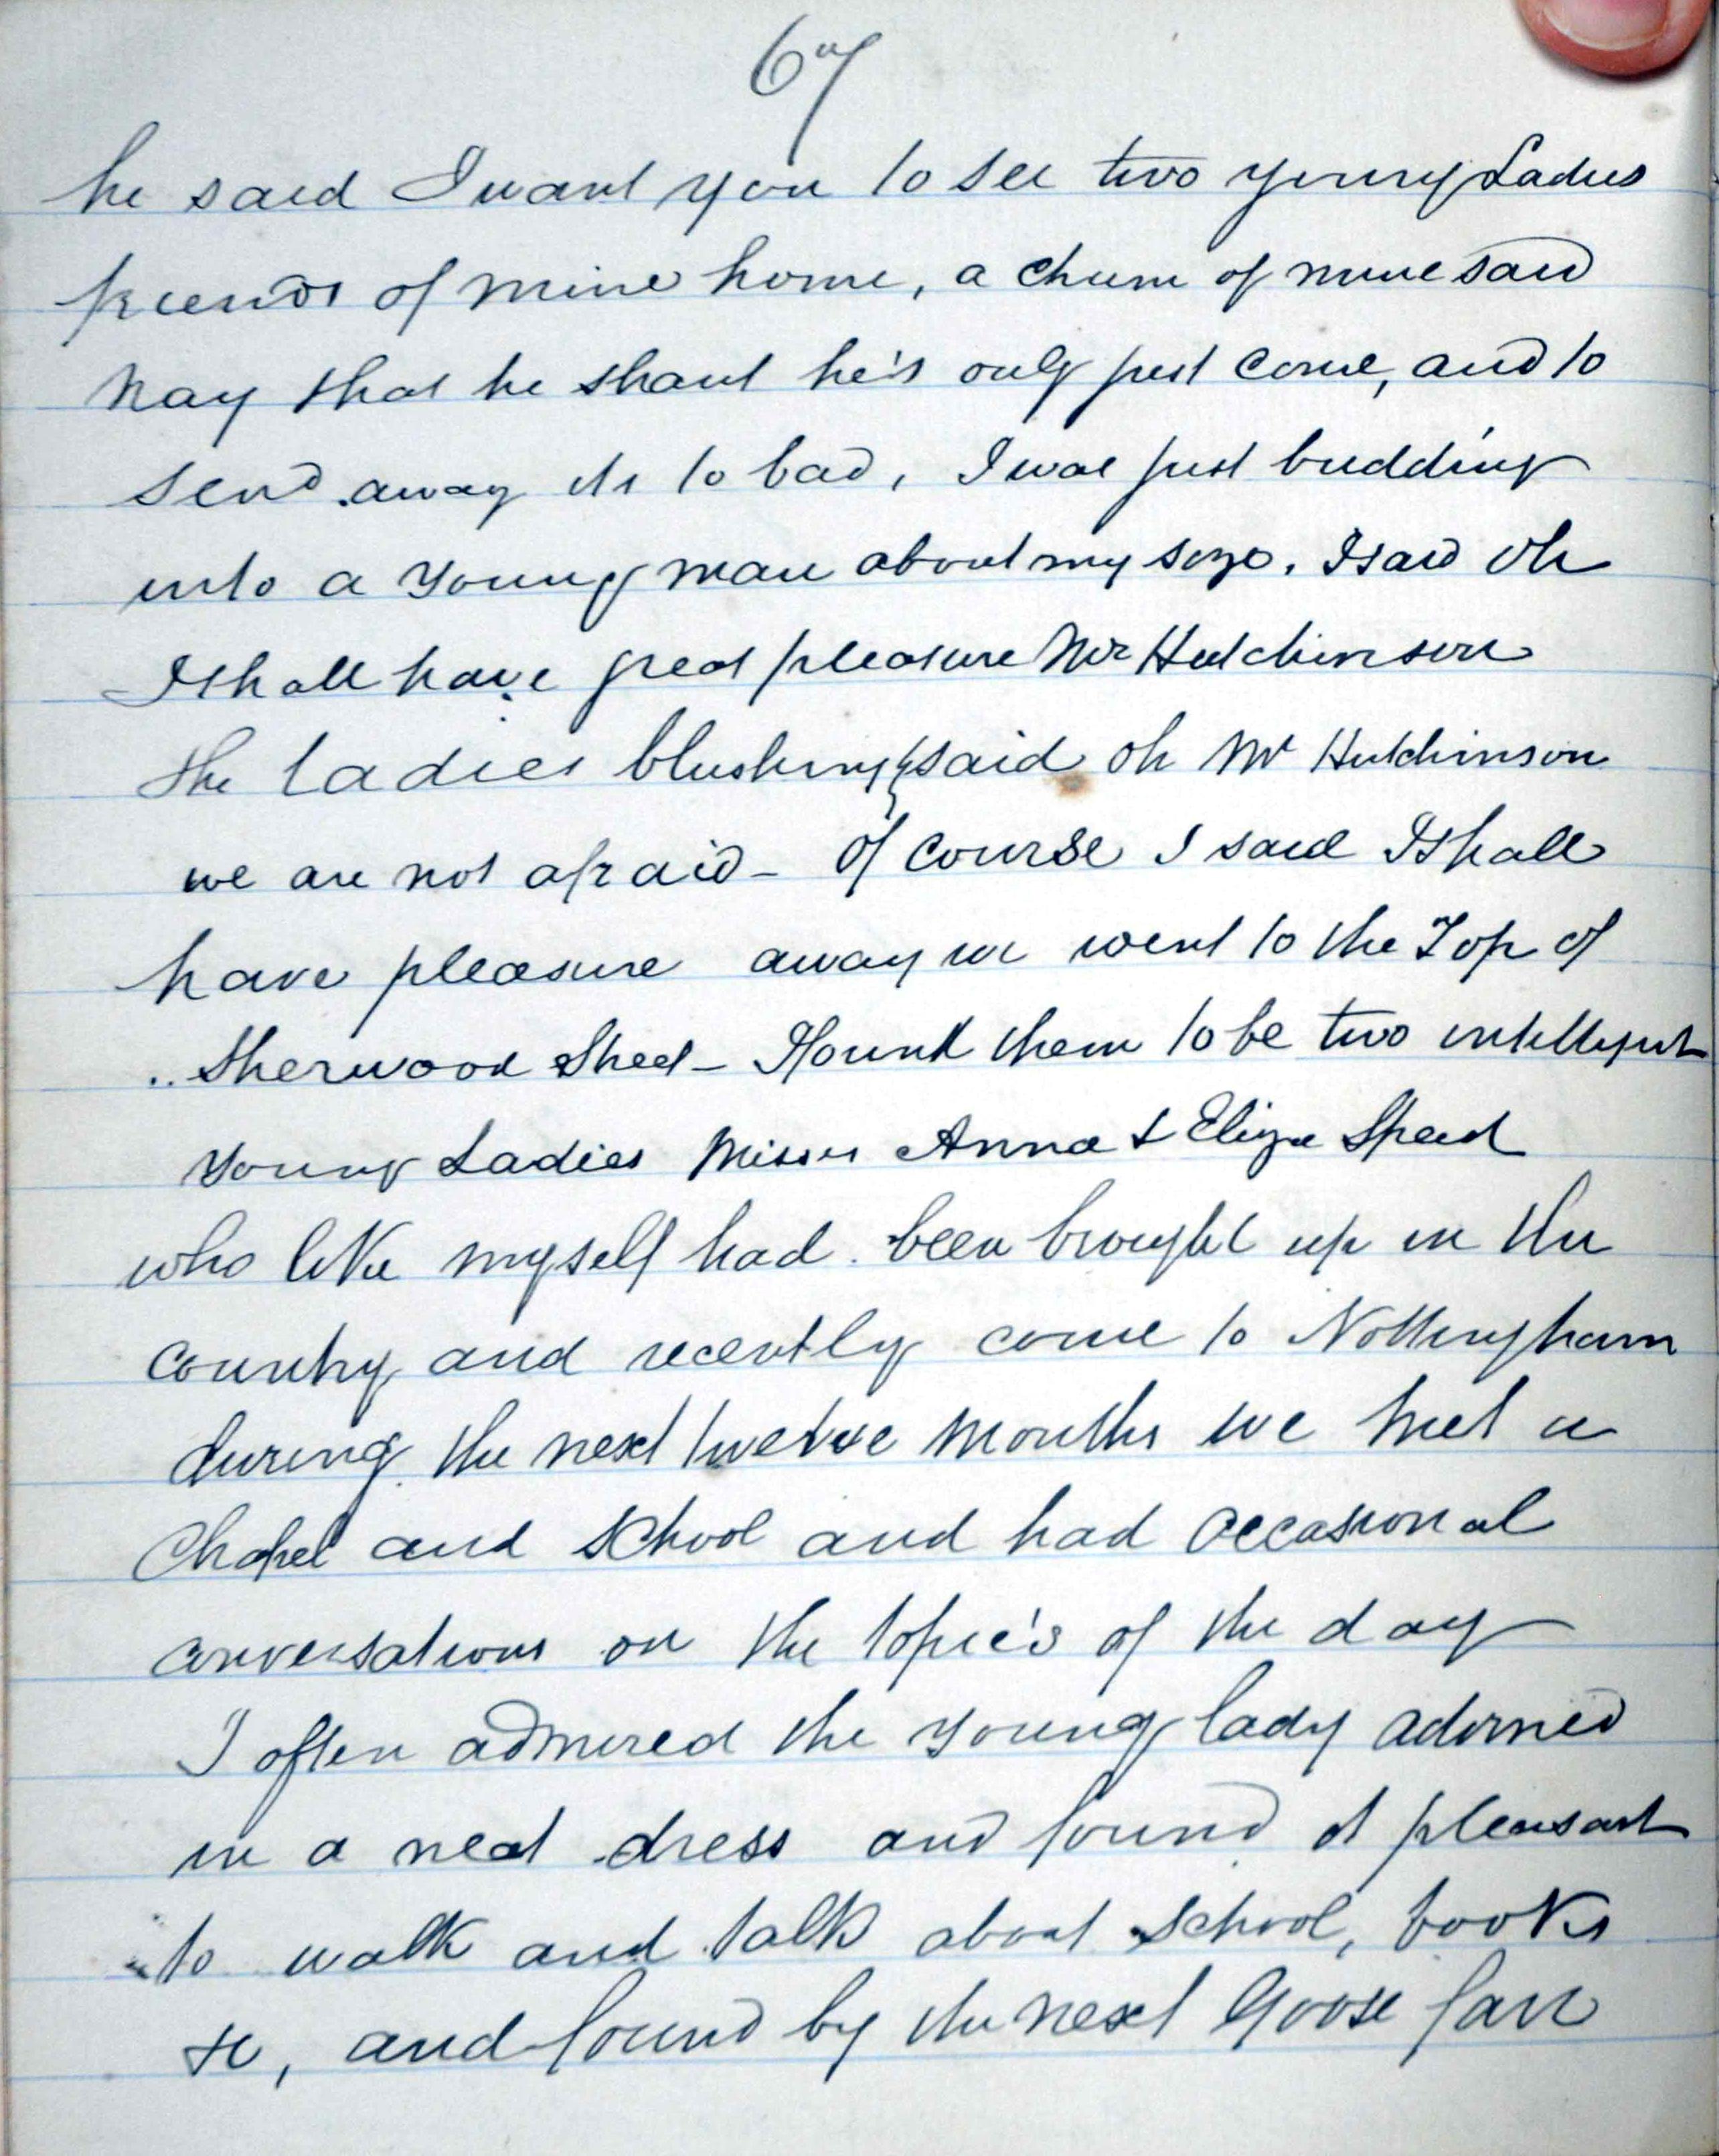 67
he said I want you to see two young Ladies
friends of mine home, a chum of mine said
Nay that he shant he's only just come, and to
send away its to bad, I was just budding
into a young man about my size. I said oh
I shall have great pleasure Mr Hutchinson
the ladies blushing said oh Mr Hutchinson
we are not afraid - Of course I said I shall
have pleasure away we went to the Top of
Sherwood Street - I found them to be two intelligent
young Ladies Misses Anna & Eliza Speed
who like myself had been brought up in the
country and recently come to Nottingham
during the next twelve months we met a
Chapel and school and had occasional
conversations on the topic's of the day
I often admired the young lady adorned
in a neat dress and found it pleasant
to walk and talk about school, books
&c, and found by the next Goose fair